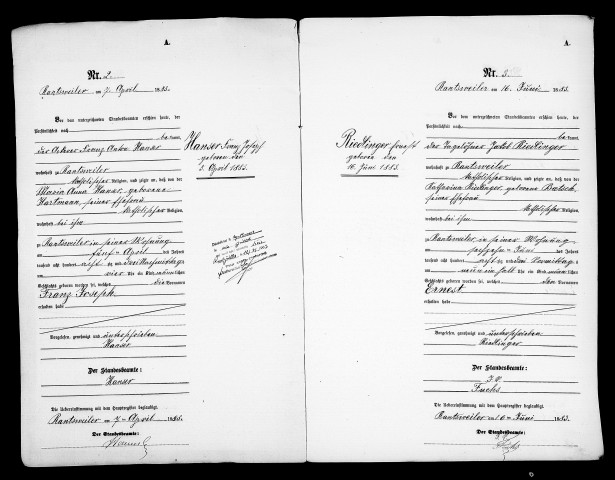 A.
Nr. 2.
Rantsweiler am 7. April 1883.
Vor dem unterzeichneten Standesbeamten erschien heute, der
Persönlichkeit nach
be kannt,
der Ackerer Franz Anton Hanser
wohnhaft zu Rantsweiler
katholischer Religion, und zeigte an, daß von der
Maria Anna Hanser, geborene
Hartmann, seiner Ehefrau
katholischer Religion,
wohnhaft bei ihm
zu Rantsweiler in seiner Wohnung
am fünften April des Jahres
tausend acht hundert achtzig und drei Nachmittags
um vier Uhr ein Kind männlichen
Geschlechts geboren worden sei, welches die Vornamen
Franz Joseph
erhalten habe
Vorgelesen, genehmigt und unterschrieben
Hanser
Der Standesbeamte:
Hanser
Die Uebereinstimmung mit dem Hauptregister beglaubigt.
Rantsweiler am 7. April 1883.
Der Standesbeamte:
Hanser Franz Joseph
geboren den
5. April 1883.
A.
Nr. 3.
Rantsweiler am 16. Juni 1883.
Vor dem unterzeichneten Standesbeamten erschien heute, der
Persönlichkeit nach
be kannt,
der Taglöhner Jakob Riedlinger
wohnhaft zu Rantsweiler
katholischer Religion, und zeigte an, daß von der
Katharina Riedlinger, geborene
seiner Ehefrau
katholischer Religion,
wohnhaft bei ihm
zu Rantsweiler in seiner Wohnung
am sechzehnten Juni des Jahres
tausend acht hundert achtzig und drei Vormittags
um ein halb Uhr ein Kind männlichen
Geschlechts geboren worden sei, welches den Vornamen
Ernest
erhalten habe
Vorgelesen, genehmigt und unterschrieben
Riedlinger
Der Standesbeamte:
Fuchs
Die Uebereinstimmung mit dem Hauptregister beglaubigt.
Rantsweiler am 16. Juni 1883.
Der Standesbeamte:
Fuchs
Riedlinger Ernest
geboren den
16. Juni 1883.